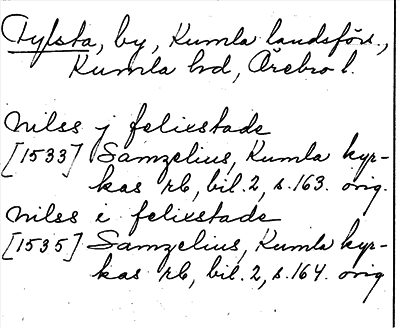 Fylsta, by, Kumla landsförs.,
Kumla hd, Örebro l.
Nilss j felixstade
[1533] Samzelius, Kumla kyr-
kas rb, bil. 2, s. 163. orig.
Nilss i felixstade
[1535] Samzelius, Kumla kyr-
kas rb, bil. 2, s. 164. orig